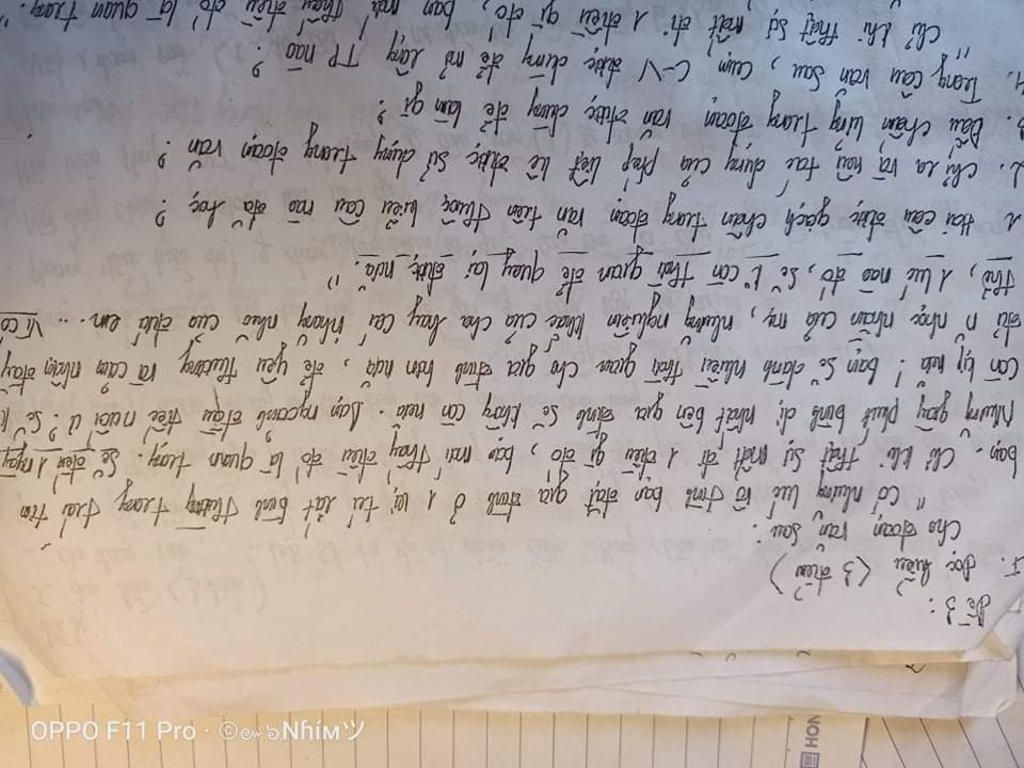 Đề 3:
I. Đọc hiểu (3 điểm)
Cho đoạn văn sau:
" Có những lúc vô tình bạn đặt gia đình ở 1 vị trí rất bình thường trong trái tim
bạn. Chỉ khi thật sự mất đi 1 điều gì đó, bạn mới thấy điều đó là quan trọng. Sẽ đến 1 ngày
những giây phút bình dị nhất bên gia đình sẽ không còn nữa. Bạn ngoảnh điều tiếc nuối ư? Sẽ k
còn kịp nữa! bạn sẽ dành nhiều thời gian cho gia đình hơn nữa, để yêu thương và cảm nhận đây
đủ n nhọc nhằn của mẹ, những nguyên khác của cha hay cái nhõng nhẽo của đứa em... Vì có
thể, 1 lúc nào đó, sẽ k còn thời gian để quay lại được nữa. "
1 Hai câu được gạch chân trong đoạn văn trên thuộc kiểu câu nào đã học ?
2. Chỉ ra và nêu tác dụng của phép liệt kê được sử dụng trong đoạn văn ?
3. Dấu chấm lửng trong đoạn văn được dùng để làm gì ?
4. Trong câu văn sau, cụm C-V được dùng để mở rộng TP nào ?
" Chỉ khi thật sự mất đi 1 điều gì đó, bạn mới thấy điều đó là quan trọng. "
OPPO F11 Pro · ©Nhímツ
HON